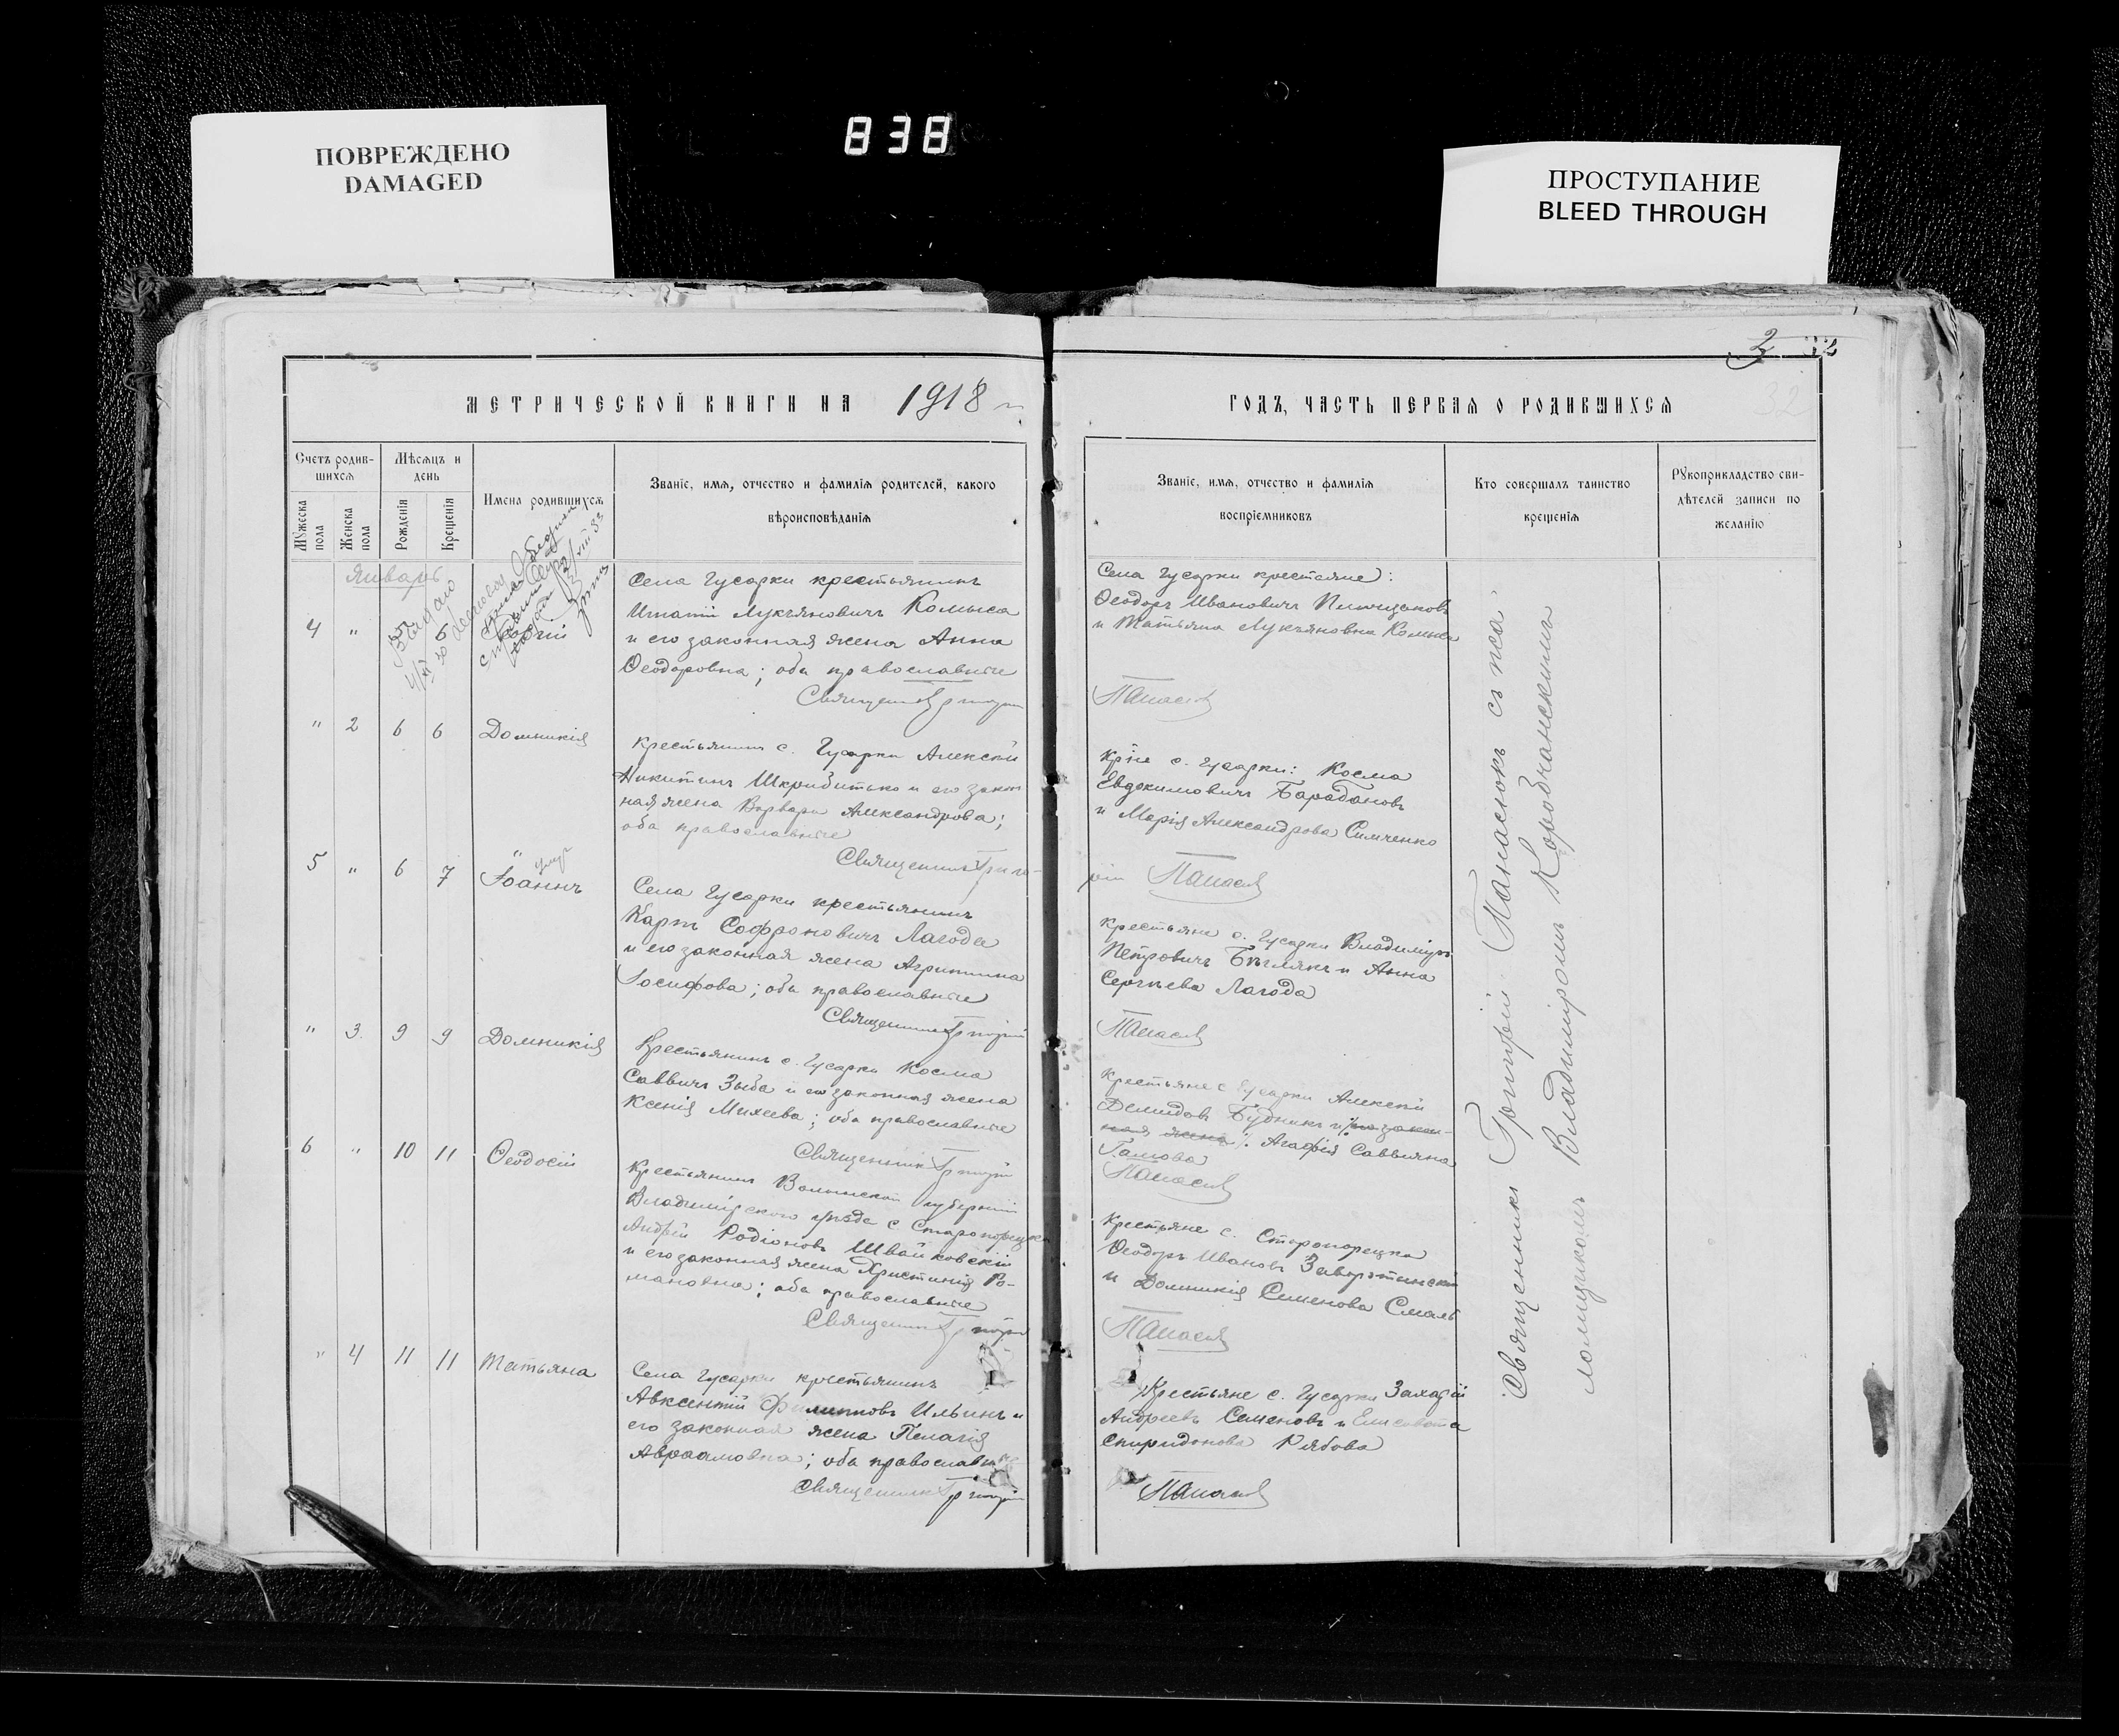 838
ПОВРЕЖДЕНО
DAMAGED
ПРОСТУПАНИЕ
BLEED THROUGH
МЕТРИЧЕСКОЙ КНИГИ НА 1918
Счетъ родив-
шихся
Мѣсяцъ и
день
Мужеска
пола
Женска
пола
Рожденія
Крещенія
Имена родившихся
Званіе, имя, отчество и фамилія родителей, какого
вѣроисповѣданія
Январь
4 "
Села Гусарки крестьянинъ
Лукьяновичъ Комыса
и его законная жена Анна
Ѳеодоровна; оба православные
Священник Григорій
" 2 6 6 Домникія
Крестьянинъ с. Гусарки Алексій
Никитинъ Шкрибитько и его закон
ная жена Варвара Александрова;
оба православные
Священник Григо-
5 " 6 7 Іоаннъ
умер
Села Гусарки крестьянинъ
Карпъ Софроновичъ Лагода
и его законная жена Агрипина
Іосифова; оба православные
Священник Григорій
" 3 9 9 Домникія
Крестьянинъ с. Гусарки Косма
Саввичъ Зыба и его законная жена
Ксенія Михеева; оба православные
Священник Григорій
6 " 10 11 Ѳеодосій
Крестьянинъ Волынской губерніи
Владимірского уѣзда с
Андрей Родіоновъ Швайковскій
и его законная жена Христинія Ро-
мановна; оба православные
Священник Григорій
" 4 11 11 Татьяна
Села Гусарки крестьянинъ
Авксентій Филипповъ Ильинъ и
его законная жена Пелагія
Авраамовна; оба православные
Священник Григорій
2
32
ГОДЪ, ЧАСТЬ ПЕРВАЯ О РОДИВШИХСЯ
Званіе, имя, отчество и фамилія
воспріемниковъ
Кто совершалъ таинство
крещенія
Рукоприкладство сви-
дѣтелей записи по
желанію
Села Гусарки крестьяне:
Ѳеодоръ Ивановичъ
и Татьяна Лукьяновна Комыса
Панасюк
Кр-не с. Гусарки: Косма
Евдокимовичъ Барабановъ
и Марія Александрова Симченко
рій Панасюк
Крестьяне с. Гусарки Владиміръ
Петровичъ Бѣглякъ и Анна
Сергѣева Лагода
Панасюк
Крестьяне с Гусарки Алексій
Демидовъ Будникъ и его закон-
ная жена Агафія Саввична
Гамова
Панасюк
Крестьяне с.
Ѳеодоръ Ивановъ
и Домникія Семенова Смаль
Панасюк
Крестьяне с. Гусарки Захарій
Андреевъ Семеновъ и Елисавета
Спиридонова Рябова
Панасюк
Священникъ Григорій Панасюкъ съ пса-
ломщикомъ Владиміромъ Коробчанскимъ